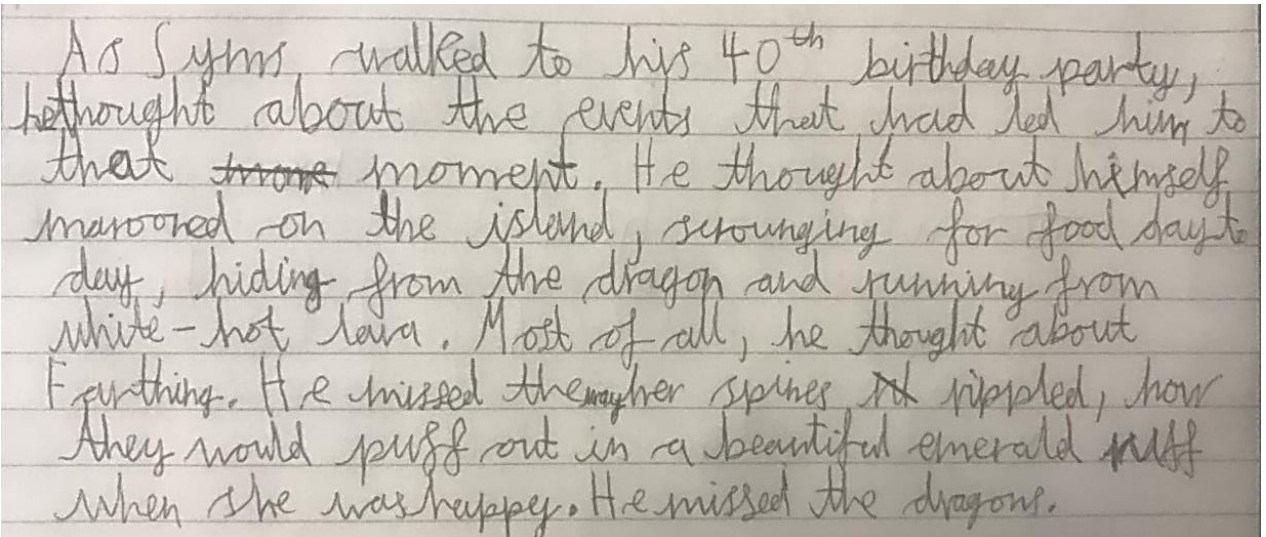 As Syms walked to his 40th birthday party,
he thought about the events that had led him to
that moment. He thought about himself
marooned on the island, scrounging for food day to
day, hiding from the dragon and running from
white-hot lava. Most of all, he thought about
Farthing. He missed the way her spines rippled, how
they would puff out in a beautiful emerald ruff
when she was happy. He missed the dragons.